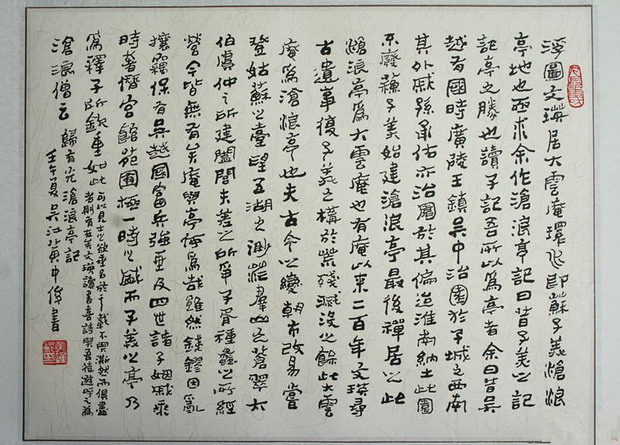 浮圖文瑛居大雲庵環水即蘇子美滄浪
亭地也亟求余作滄浪亭記曰昔子美之記
記亭之勝也請子記吾所以為亭者余曰昔吳
越有國時廣陵王鎮吳中治園於子城之西南
其外戚孫承佑亦治園於其偏迨淮南納土此園
不廢蘇子美始建滄浪亭最後禪居之此
滄浪亭為大雲庵也有庵以來二百年文瑛尋
古遺事復子美之構於荒殘滅沒之餘此大雲
庵為滄浪亭也夫古今之變朝市改易嘗
登姑蘇之臺望五湖之渺茫羣山之蒼翠太
伯虞仲之所建闔閭夫差之所爭子胥種蠡之所經
營今皆無有矣庵與亭何為哉雖然錢鏐因亂
攘竊保有吳越國富兵強垂及四世諸子姻戚乘
時奢僭宮館苑囿極一時之盛而子美之亭乃
為釋子所欽重如此
可以見士之欲垂名於千載不與澌然而俱盡
者則有在矣文瑛讀書喜詩與吾徒遊呼之為
滄浪僧云 歸有光滄浪亭記
壬午夏吳江黃中俊書